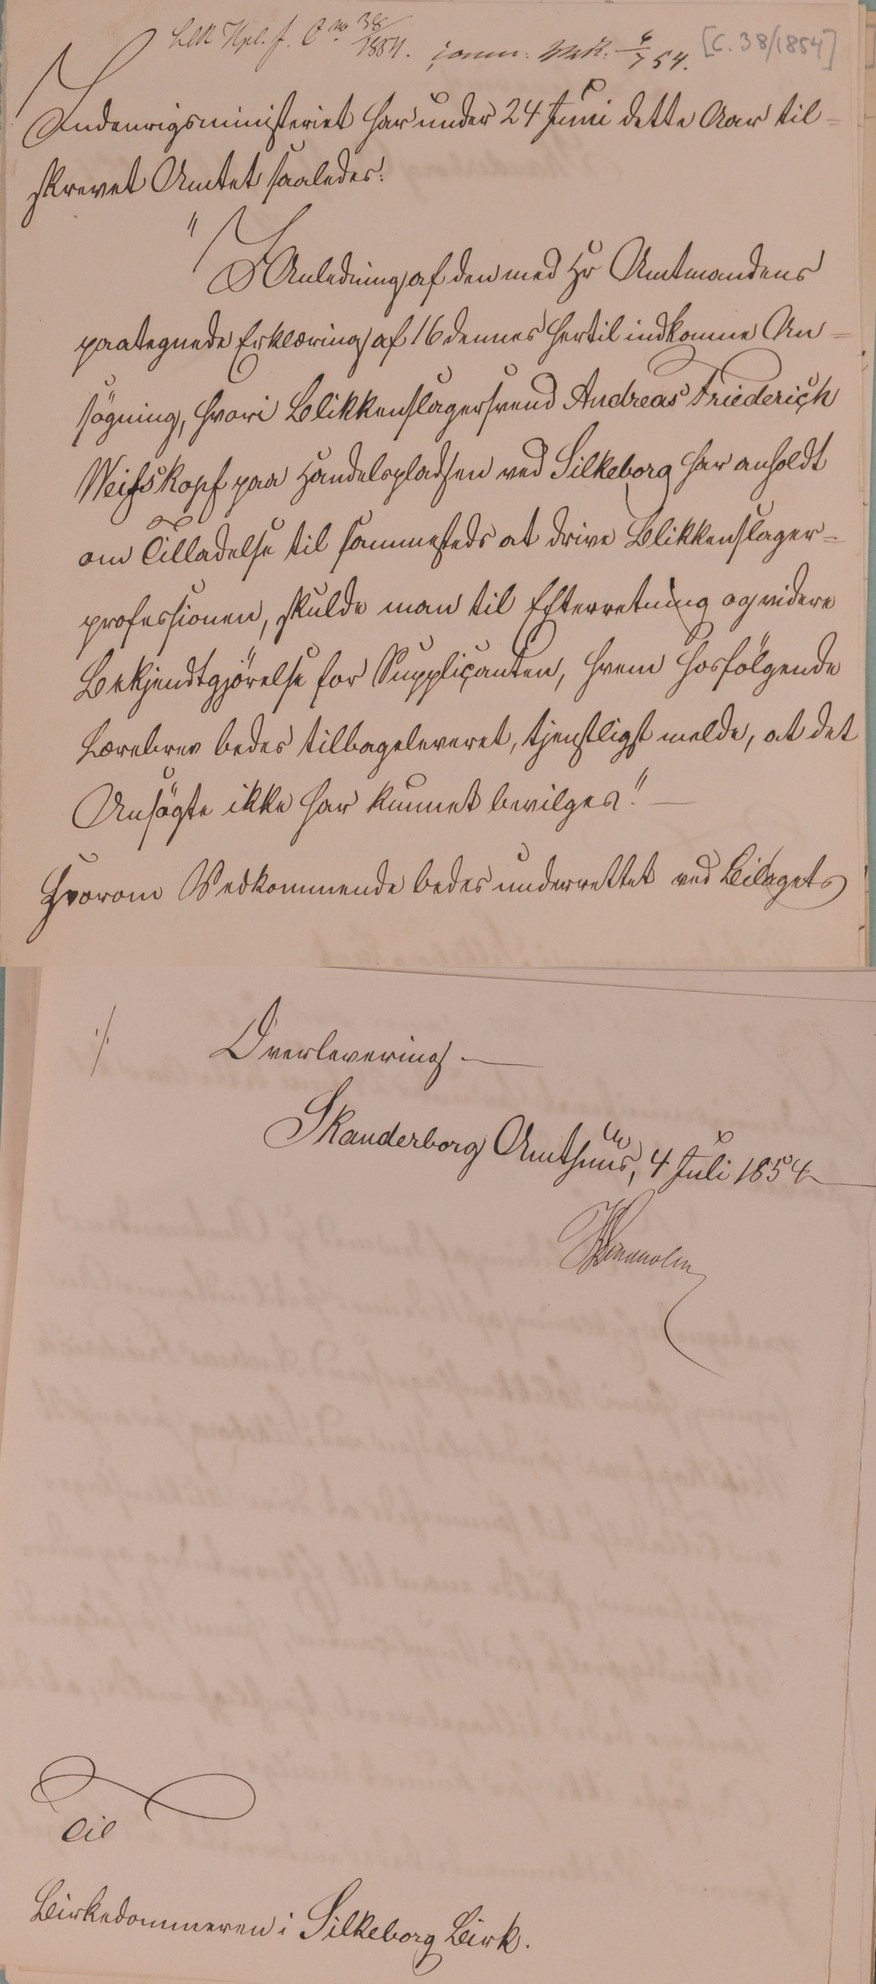 Hpl. f. C no 38/1854. 6/7 54. [C. 38/1854]
Indenrigsministeriet har under 24 Juni dette Aar til-
skrevet Amtet saaledes:
"I Anledning af den med Hr Amtmandens
paategnede Erklæring af 16 dennes hertil indkomne An-
søgning, hvori Blikkenslagersvend Andreas Friederich
Weisskopf paa Handelspladsen ved Silkeborg har anholdt
om Tilladelse til sammesteds at drive Blikkenslager-
professionen, skulde man til Efterretning og videre
Bekjendtgjørelse for Supplicanten, hvem hosfølgende
Lærebrev bedes tilbageleveret, tjenstligst melde, at det
Ansøgte ikke har kunnet bevilges." —
Hvorom Vedkommende bedes underrettet ved Bilagets
./. Overlevering. —
Skanderborg Amthuus, 4 Juli 1854
Til
Birkedommeren i Silkeborg Birk.